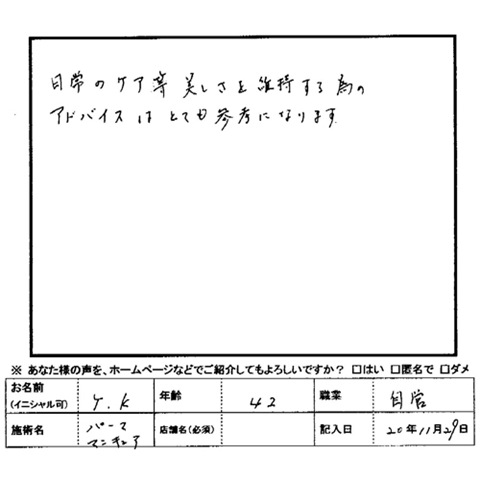 日常のケア等美しさを維持する為の
アドバイスはとても参考になります
※ あなた様の声を、ホームページなどでご紹介してもよろしいですか？ □はい □匿名で □ダメ
お名前 (イニシャル可) Y.K 年齢 42 職業 自営
施術名 パーマ マニキュア 店舗名(必須) 記入日 20年11月29日